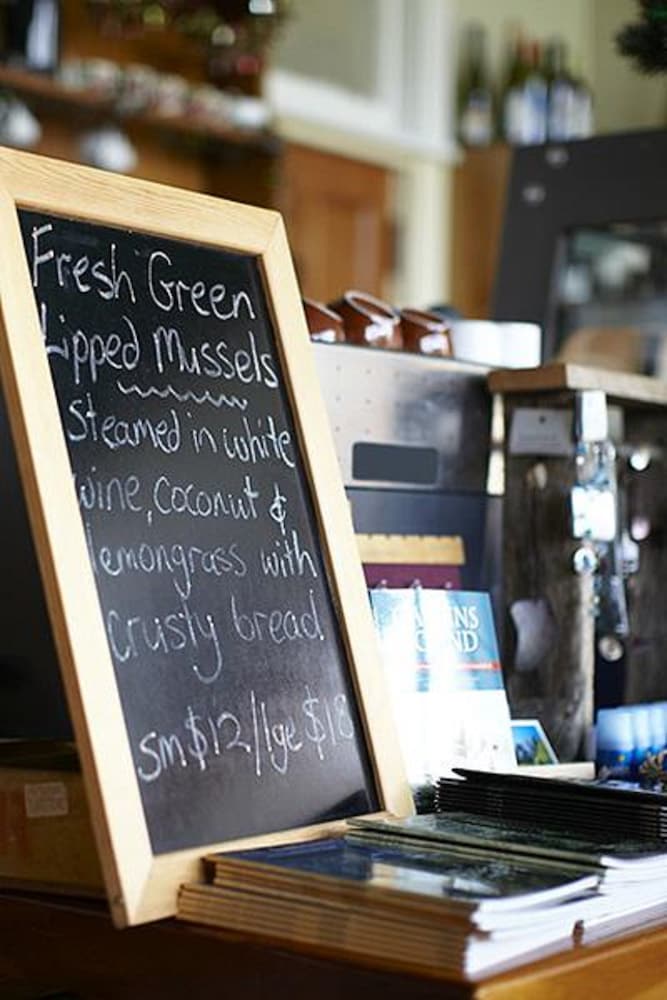 Fresh Green
Lipped Mussels
Steamed in white
wine, coconut &
lemongrass with
crusty bread.
sm $12/lge $18